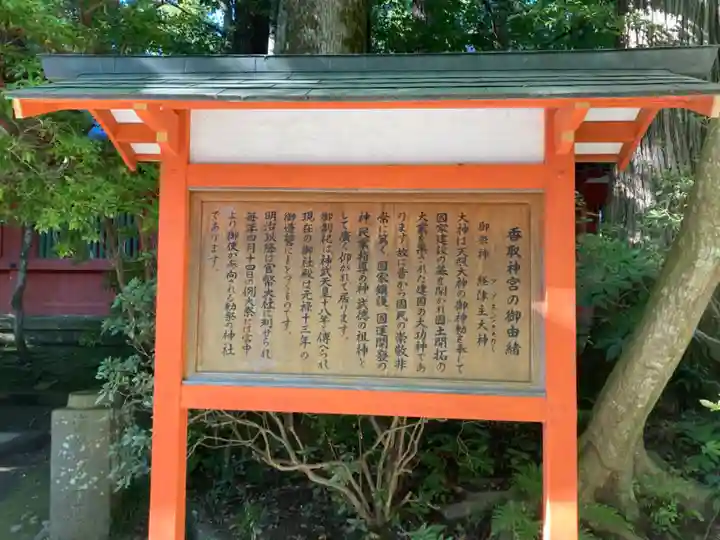 香取神宮の御由緒
フツヌシノオホカミ
御祭神 経津主大神
大神は天照大神の御神勅を奉じて
国家建設の基を開かれ国土開拓の
大業を果された建国の大功神であ
ります 故に昔から国民の崇敬非
常に篤く国家鎮護、国運開発の
神 民業指導の神 武徳の祖神と
して広く仰がれて居ります。
御創祀は神武天皇十八年と伝へられ
現在の御社殿は元禄十三年の
御造営にかゝるものです。
明治以降は官幣大社に列せられ
毎年四月十四日の例大祭には宮中
より御使が参向される勅祭の神社
であります。